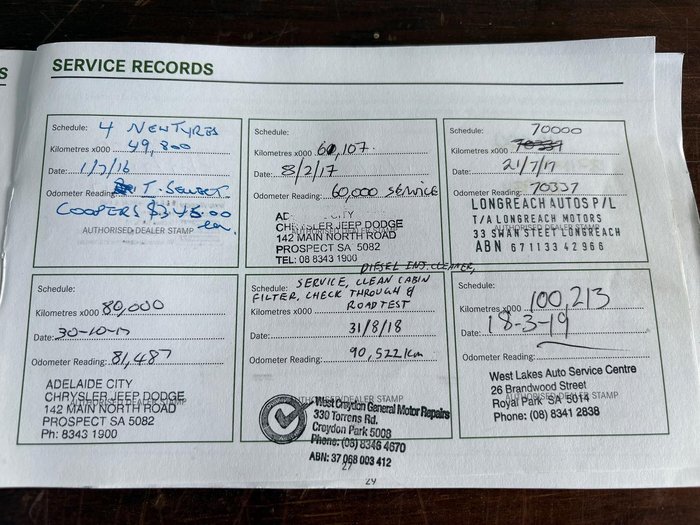 S
SERVICE RECORDS
Schedule: 4 NEW TYRES
Kilometres x000 49,800
Date: 1/7/16
Odometer Reading: T. SELECT
COOPERS $345.00
ea.
AUTHORISED DEALER STAMP
Schedule:
Kilometres x000 60,107.
Date: 8/2/17
Odometer Reading: 60,000 SERVICE
ADELAIDE CITY
CHRYSLER JEEP DODGE
AUTHORISED DEALER STAMP
142 MAIN NORTH ROAD
PROSPECT SA 5082
TEL: 08 8343 1900
Schedule: 70000
Kilometres x000 70337
Date: 21/7/17
Odometer Reading: 70337
LONGREACH AUTOS P/L
T/A LONGREACH MOTORS
33 SWAN STEET LONGREACH
AUTHORISED DEALER STAMP
ABN 671133 42 966
Schedule:
Kilometres x000 80,000
Date: 30-10-17
Odometer Reading: 81,487
ADELAIDE CITY
CHRYSLER JEEP DODGE
AUTHORISED DEALER STAMP
142 MAIN NORTH ROAD
PROSPECT SA 5082
Ph: 8343 1900
DIESEL INJ. CLEANER,
Schedule: SERVICE, CLEAN CABIN
FILTER, CHECK THROUGH &
Kilometres x000 ROAD TEST
Date: 31/8/18
Odometer Reading: 90,522 km
AUTHORISED DEALER STAMP
West Croydon General Motor Repairs
330 Torrens Rd.
Croydon Park 5008
Phone: (08) 8346 4670
ABN: 37 068 003 412
27
Schedule:
Kilometres x000 100,213
Date: 18-3-19
Odometer Reading:
West Lakes Auto Service Centre
26 Brandwood Street
AUTHORISED DEALER STAMP
Royal Park SA 5014
Phone: (08) 8341 2838
29